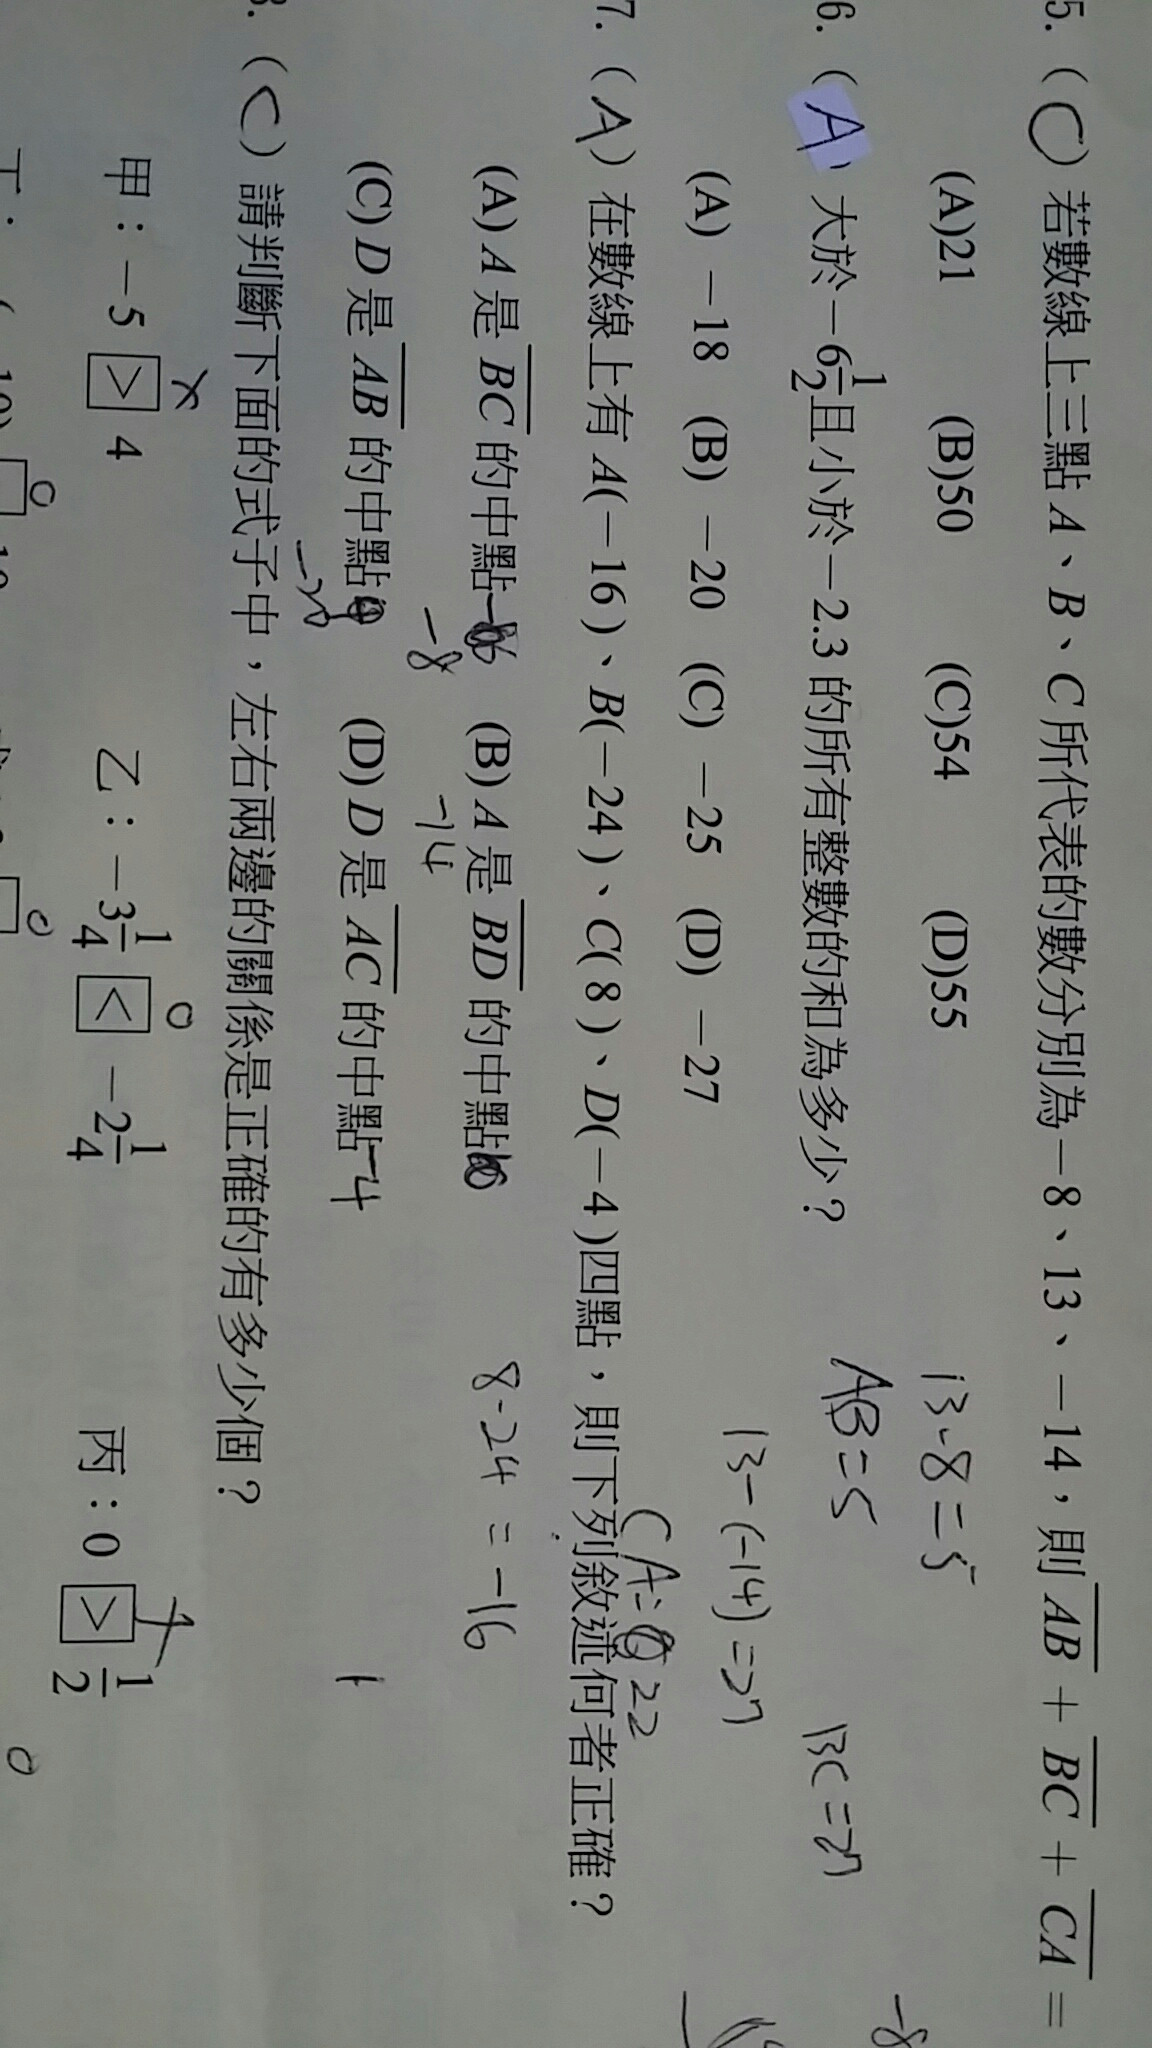 5. (C) 若數線上三點 A、B、C 所代表的數分別為 -8、13、-14,則 AB + BC + CA =
(A)21 (B)50 (C)54 (D)55
13-8=5
-8
6. (A) 大於 -6 1/2 且小於 -2.3 的所有整數的和為多少?
AB=5 BC=27
(A) -18 (B) -20 (C) -25 (D) -27
13-(-14)=27
CA= 22
7. (A) 在數線上有 A(-16)、B(-24)、C(8)、D(-4)四點,則下列敘述何者正確?
(A) A 是 BC 的中點 (B) A 是 BD 的中點
8-24 = -16
-8 -14
(C) D 是 AB 的中點 (D) D 是 AC 的中點 -4
-20
(C) 請判斷下面的式子中,左右兩邊的關係是正確的有多少個?
甲:-5 > 4 乙:-3 1/4 < -2 1/4 丙:0 > 1/2